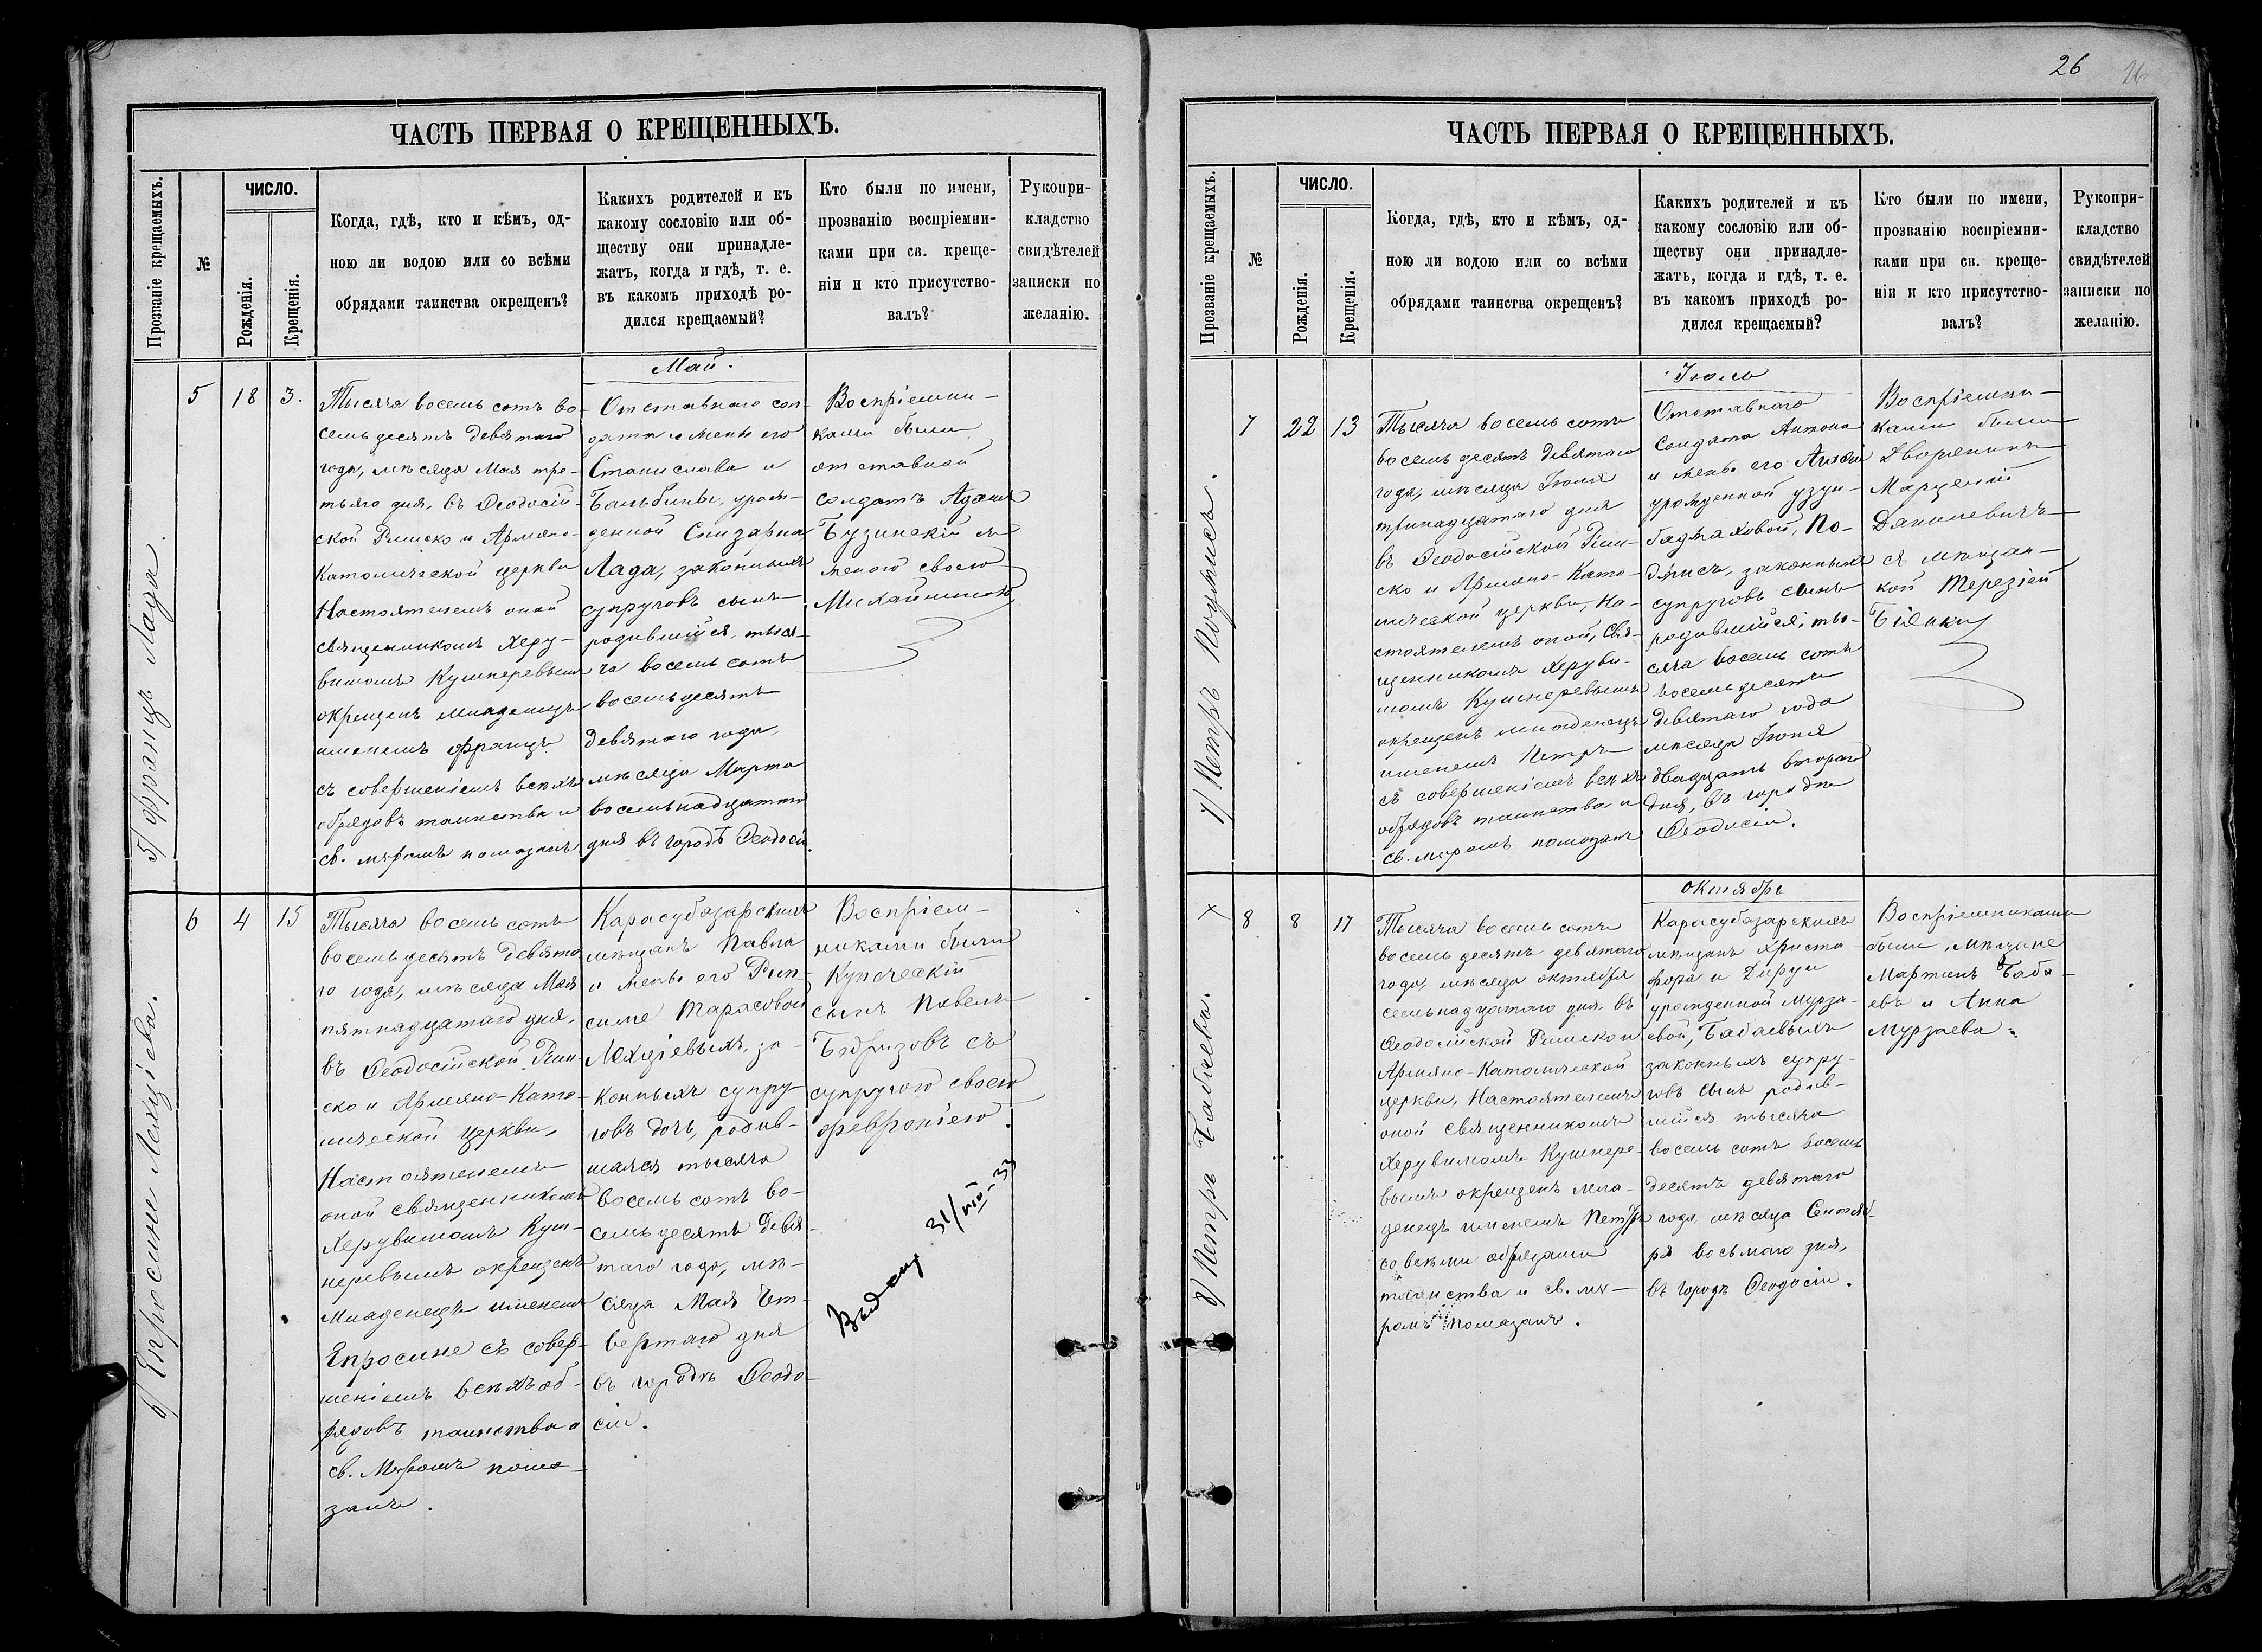 26
26
ЧАСТЬ ПЕРВАЯ О КРЕЩЕННЫХЪ.
Прозваніе крещаемыхъ.
№
ЧИСЛО.
Рожденія.
Крещенія.
Когда, гдѣ, кто и кѣмъ, од-
ною ли водою или со всѣми
обрядами таинства окрещенъ?
Какихъ родителей и къ
какому сословію или об-
ществу они принадле-
жатъ, когда и гдѣ, т. е.
въ какомъ приходѣ ро-
дился крещаемый?
Кто были по имени,
прозванію воспріемни-
ками при св. креще-
ніи и кто присутство-
валъ?
Рукопри-
кладство
свидѣтелей
записки по
желанію.
Май.
5/ Францъ Лада.
5
18
3.
Тысяча восемь сотъ во-
семьдесятъ девятаго
года, мѣсяца Мая тре-
тьяго дня, въ Ѳеодосій-
ской Римско и Армяно-
Католической церкви
Настоятелемъ оной
священникомъ Херу-
вимомъ Кушнеревымъ
окрещенъ младенецъ
именемъ Францъ
съ совершеніемъ всѣхъ
обрядовъ таинства и
св. мѵромъ помазанъ
Отставнаго сол-
дата и жены его
Станислава и
Бальбины, урож-
денной
Лада, законныхъ
супруговъ сынъ
родившійся, тыся-
ча восемь сотъ
восемьдесятъ
девятаго года,
мѣсяца Марта
восемьнадцатаго
дня въ городѣ Ѳеодосіи.
Воспріемни-
ками были
отставной
солдатъ Адамъ
Бузинскій съ
женою своею
6/ Епросине Лехціева.
6
4
15
Тысяча восемь сотъ
восемьдесятъ девята-
го года, мѣсяца Мая
пятнадцатаго дня,
въ Ѳеодосійской Рим-
ско и Армяно-Като-
лической церкви,
Настоятелемъ
оной священникомъ
Херувимомъ Куш-
неревымъ окрещенъ
Младенецъ именемъ
Епросине съ совер-
шеніемъ всѣхъ об-
рядовъ таинства и
св. Мѵромъ пома-
занъ.
Карасубазарскихъ
мѣщанъ Павла
и жены его Рип-
симе Тарасовой
Лехціевыхъ, за-
конныхъ супру-
говъ дочь, родив-
шаяся тысяча
восемь сотъ во-
семьдесятъ девя-
таго года, мѣ-
сяца Мая Чет-
вертаго дня
въ городѣ Ѳеодо-
сіи.
Воспріем-
никами были
Купеческій
сынъ Павелъ
съ
супругою своею
Февроніею.
31/VIII-33
ЧАСТЬ ПЕРВАЯ О КРЕЩЕННЫХЪ.
Прозваніе крещаемыхъ.
№
ЧИСЛО.
Рожденія.
Крещенія.
Когда, гдѣ, кто и кѣмъ, од-
ною ли водою или со всѣми
обрядами таинства окрещенъ?
Какихъ родителей и къ
какому сословію или об-
ществу они принадле-
жатъ, когда и гдѣ, т. е.
въ какомъ приходѣ ро-
дился крещаемый?
Кто были по имени,
прозванію воспріемни-
ками при св. креще-
ніи и кто присутство-
валъ?
Рукопри-
кладство
свидѣтелей
записки по
желанію.
Іюль
7/ Петръ
7
22
13
Тысяча восемь сотъ
восемьдесятъ девятаго
года, мѣсяца Іюля
тринадцатаго дня
въ Ѳеодосійской Рим-
ско и Армяно-Като-
лической церкви, На-
стоятелемъ оной, Свя-
щенникомъ Херуви-
момъ Кушнеревымъ
окрещенъ младенецъ
именемъ Петръ
съ совершеніемъ всѣхъ
обрядовъ таинства и
св. мѵромъ помазанъ
Отставнаго
солдата Антона
и жены его
урожденной
законныхъ
супруговъ сынъ
родившійся, ты-
сяча восемь сотъ
восемьдесятъ
девятаго года
мѣсяца Іюня
двадцать втораго
дня, въ городѣ
Ѳеодосіи.
Воспріемни-
ками были
Дворянинъ
Марцелій
Данилевичъ
съ мѣщан-
кой Терезіей
октябрь
8/ Петръ Бабаевъ.
8
8
17
Тысяча восемь сотъ
восемьдесятъ девятаго
года, мѣсяца октября
семьнадцатаго дня, въ
Ѳеодосійской Римско и
Армяно-Католической
церкви, Настоятелемъ
оной священникомъ
Херувимомъ Кушнере-
вымъ окрещенъ мла-
денецъ именемъ Петръ
со всѣми обрядами
таинства и св. мѵ-
ромъ помазанъ.
Карасубазарскихъ
мѣщанъ Христо-
фора и
урожденной Мурза-
евой, Бабаевыхъ
законныхъ супру-
говъ сынъ родив-
шійся тысяча
восемь сотъ восемь
десятъ девятаго
года мѣсяца Сентяб-
ря восьмаго дня,
въ городѣ Ѳеодосіи.
Воспріемниками
были мѣщане
Мартинъ Баба-
евъ и Анна
Мурзаева.